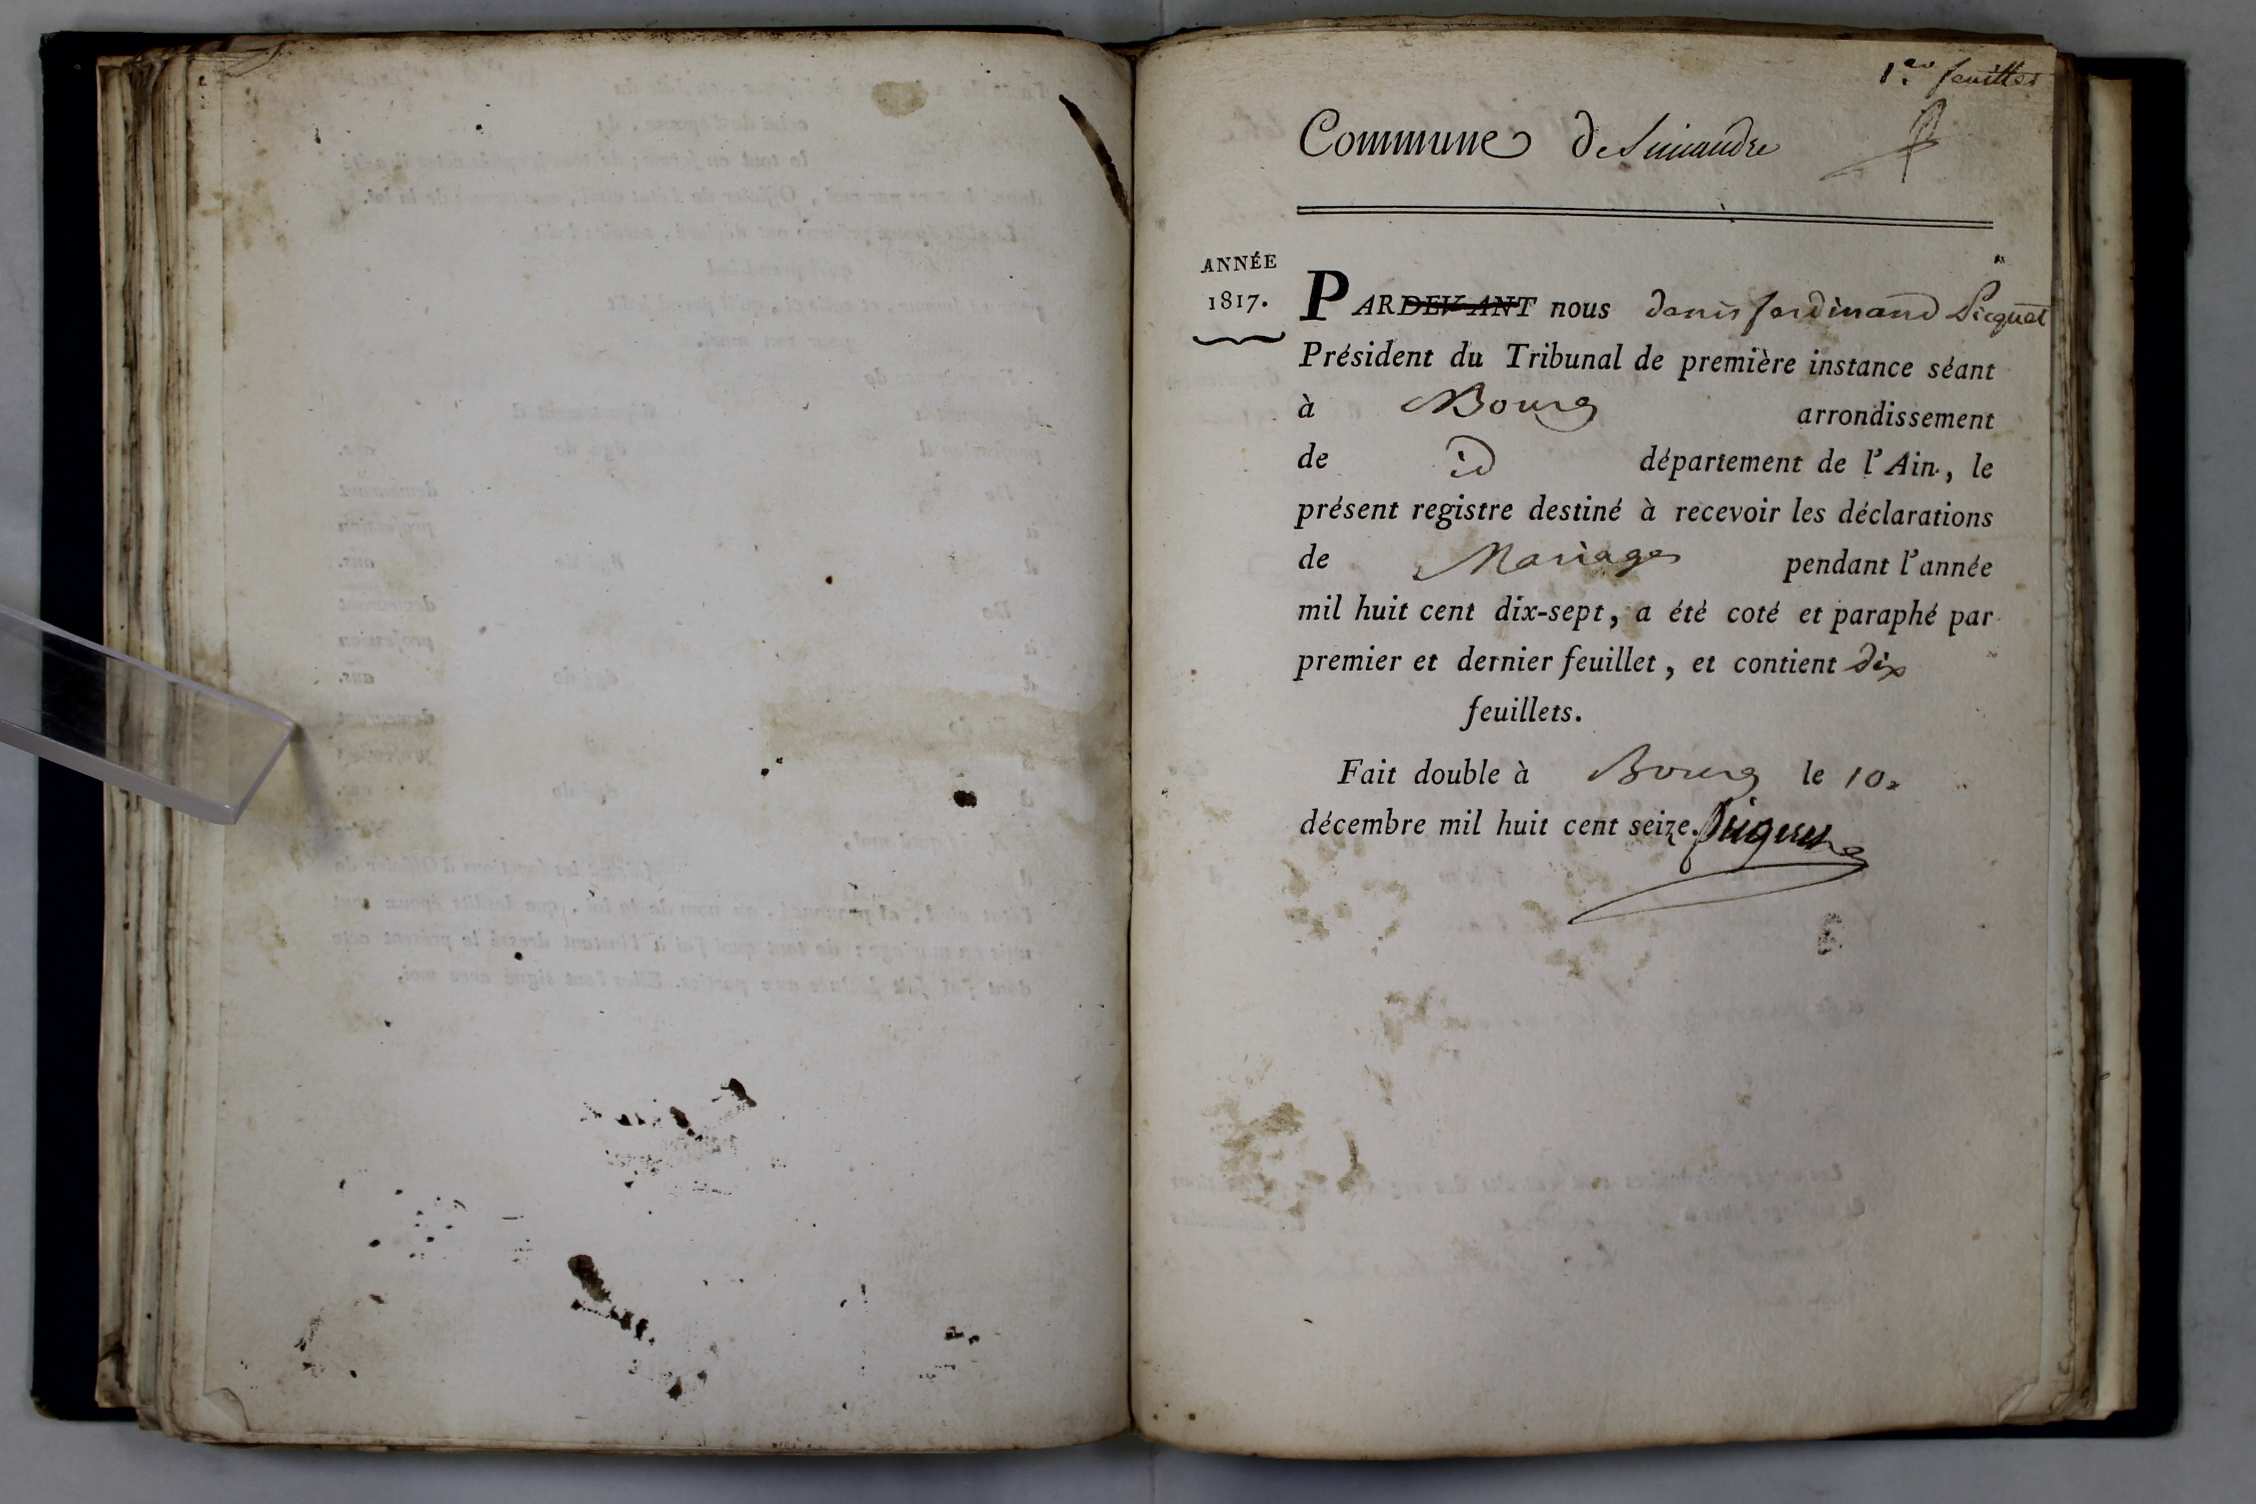 1.er feuillet
Commune de Simandre
ANNÉE
1817.
PARDEVANT nous denis ferdinand Picquet
Président du Tribunal de première instance séant
à Bourg arrondissement
de id département de l'Ain, le
présent registre destiné à recevoir les déclarations
de Mariages pendant l'année
mil huit cent dix-sept, a été coté et paraphé par
premier et dernier feuillet, et contient dix
feuillets.
Fait double à Bourg le 10
décembre mil huit cent seize. Picquet